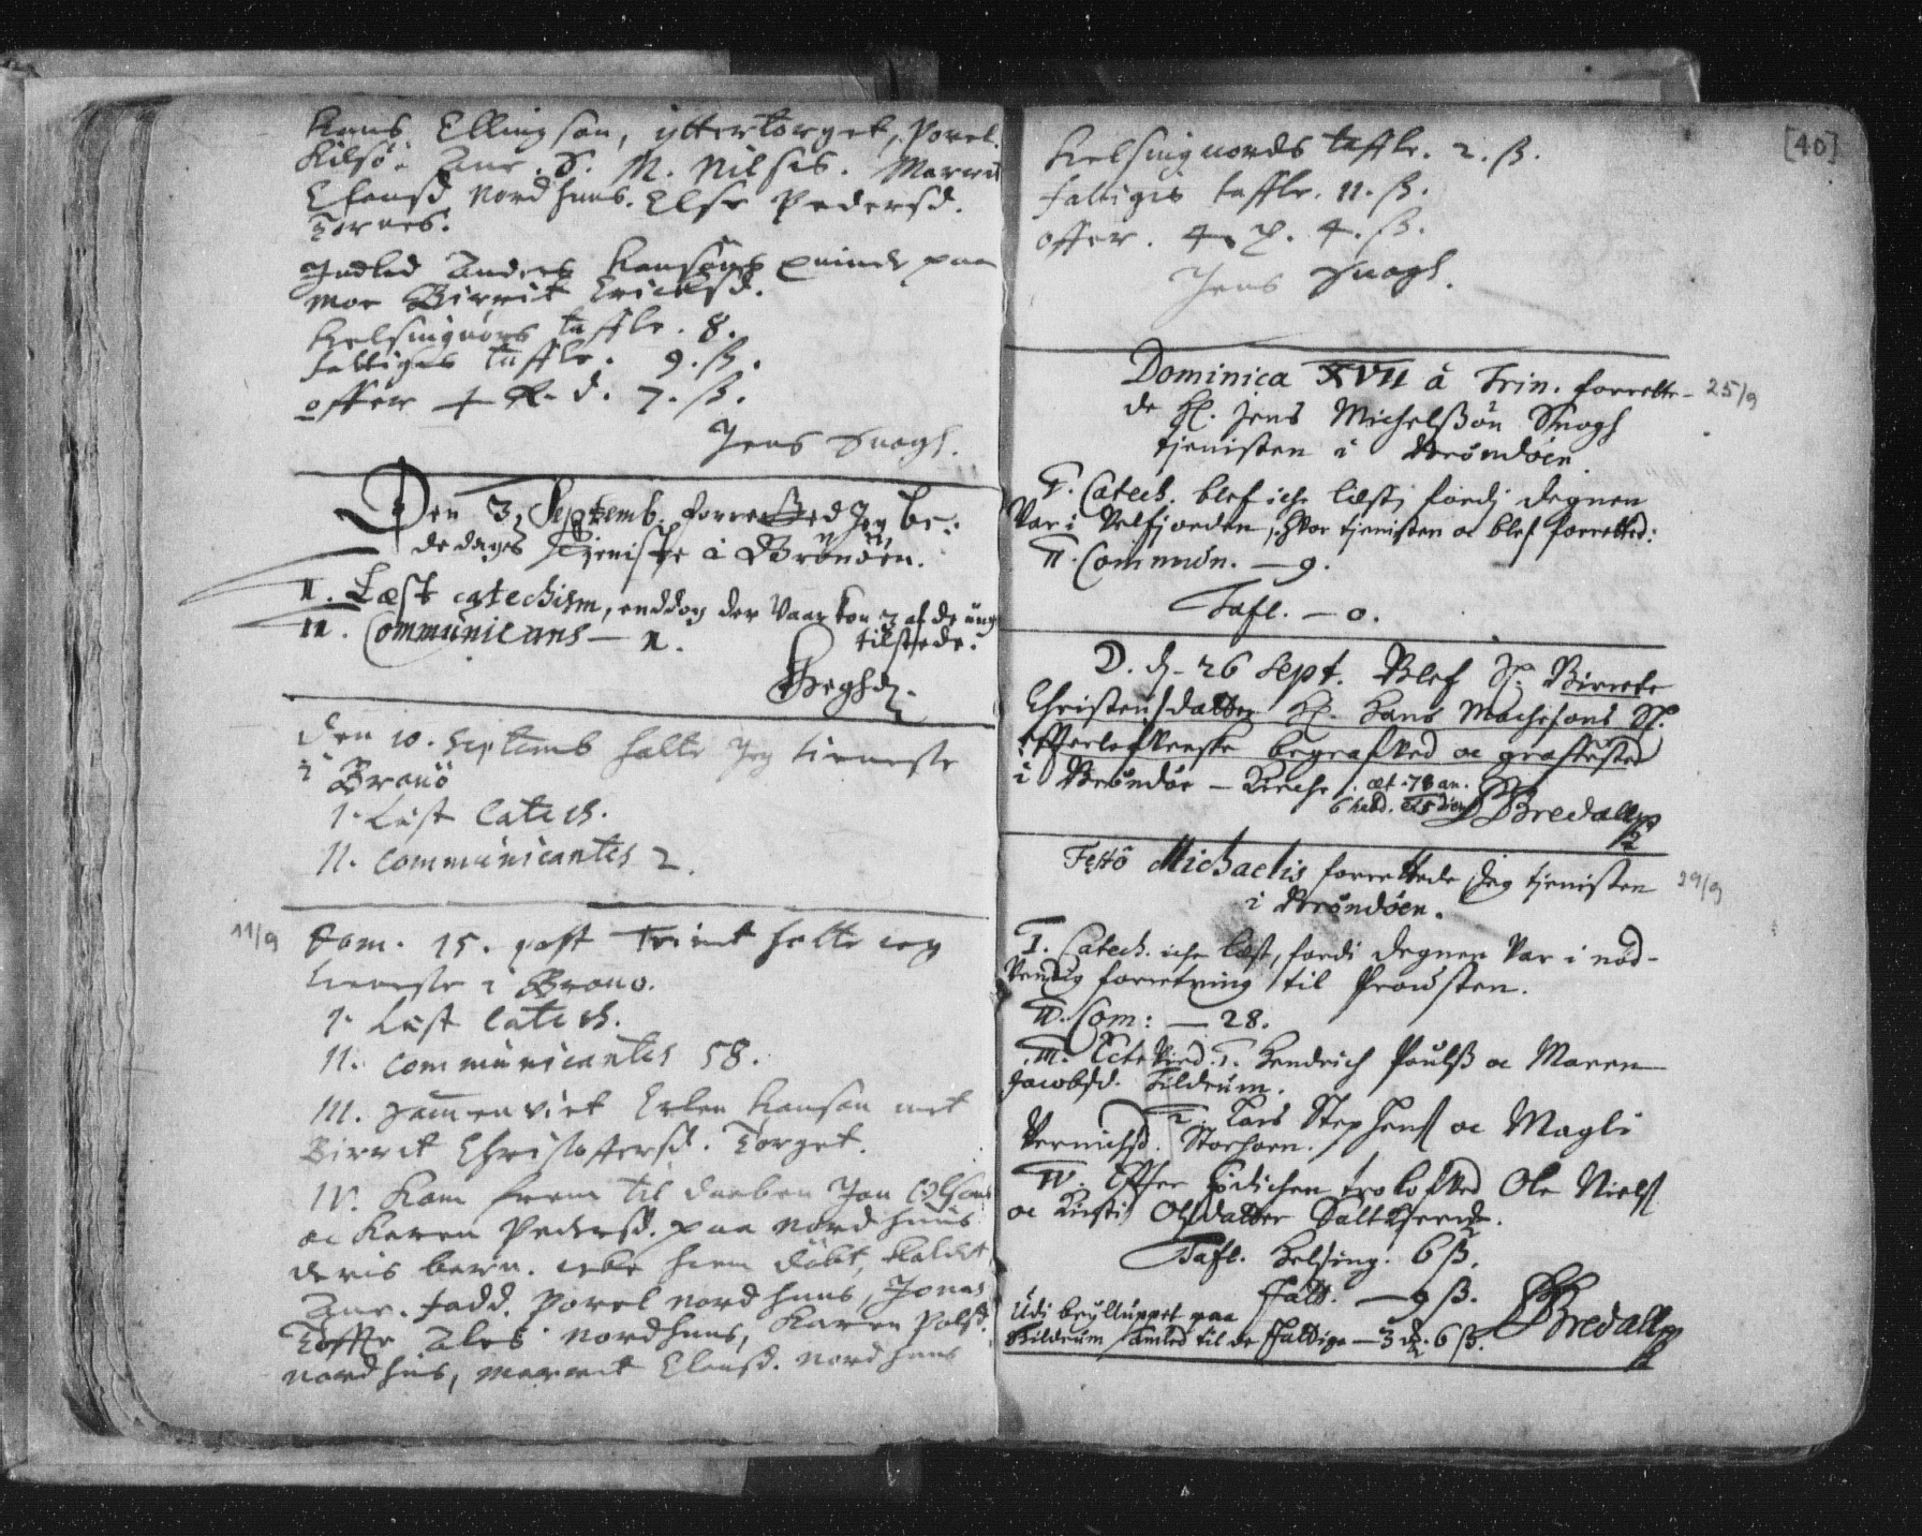 Hans Ellingsøn, yttertorget, Porel
Kilsø: Ane. S. M. Nilses. Marrit
Elensd. Nordhuus. Else Pedersd.
Tornes.
Indled Anders Hansøns quinde paa
Moe Birrit Ericksd.
Helsingnørs taffle. 8.
Fattiges taffle. 9. ß.
offer d. 7. ß.
Jens Snogh.
Den 3. Septemb. forretted Jeg be:
dedages Tjeniste i Brønøen.
II. Læst catechism, enddog der vaar kon af de ung
tilstede.
III. Communicans — n.
Den 10. Septemb holte Jeg tieneste
i Bronö
1. Läst Catech.
II. Communicantes 2.
11/9
Dom. 15. post Trinit holte ieg
tieneste i Brono.
1. Läst Catech.
II. Communicantes 58.
III. Sammenviet Erlen Hansøn met
Birrit Christoffersd. Torget.
IV. Kom frem til daaben Jon Olsøns
oc Karen Pedersd. paa Nordhuus
deris barn. icke hiem döbt, kaldet
Ane. fadd. Porel Nordhuus, Jonas
Tofte Ales Nordhuus, Karen Polsd.
Nordhuus, Marrit Elensd. Nordhuus
[40]
Helsingnörds taffle. 2. ß.
Fattiges taffle. 11. ß.
offer. 4. 4. ß.
Jens Snogh.
Dominica XVII â Trin. forrette- 25/9
de Hl. Jens Michelsßøn Snogh
tjenisten i Brøndöen.
I. Catech. blef iche læst, fordj degnen
Var i Velfjorden, hvor tjenisten oc blef forretted:
II. Commun. — 9.
Tafl. — 0.
D. d. 26 Sept. Blef Sl. Birrete
Christensdatter Hl. Hans Mochesøns Sl.
Effterlefverske begrafved oc graffested
i Brøndöe — Kirche. æt. 78 an.
6 hebd.
Bredall
Festo Michaelis forrettede Jeg tjenisten 29/9
i Brøndöen.
I. Catech. iche læst, fordi degnen Var i nöd-
Vendig forretning til Prousten.
II. Com: — 28.
III. Ecte Vied. 1. Hendrich Poulß oc Maren
Jacobsd. Tildrum.
2. Lars Stephens oc Magli
Vernichsd. Storhorn.
IV. Effter trolofved Ole Niels
oc Kirsti Olsdatter
Tafl. Helsing. 6 ß.
Fatt. — 9 ß.
Udi brylluppet paa
Tildrum samled til de Fattige — 3 6 ß.
Bredall